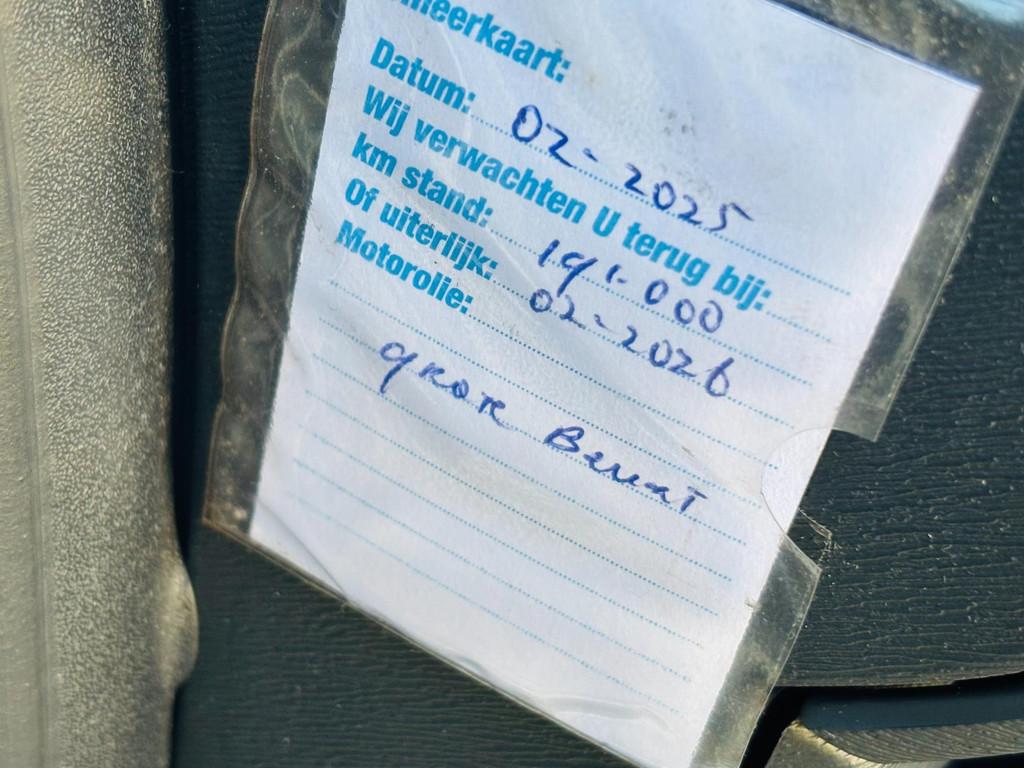 meerkaart:
Datum: 02-2025
Wij verwachten U terug bij:
km stand: 191.000
Of uiterlijk: 02-2026
Motorolie:
grote Beurt